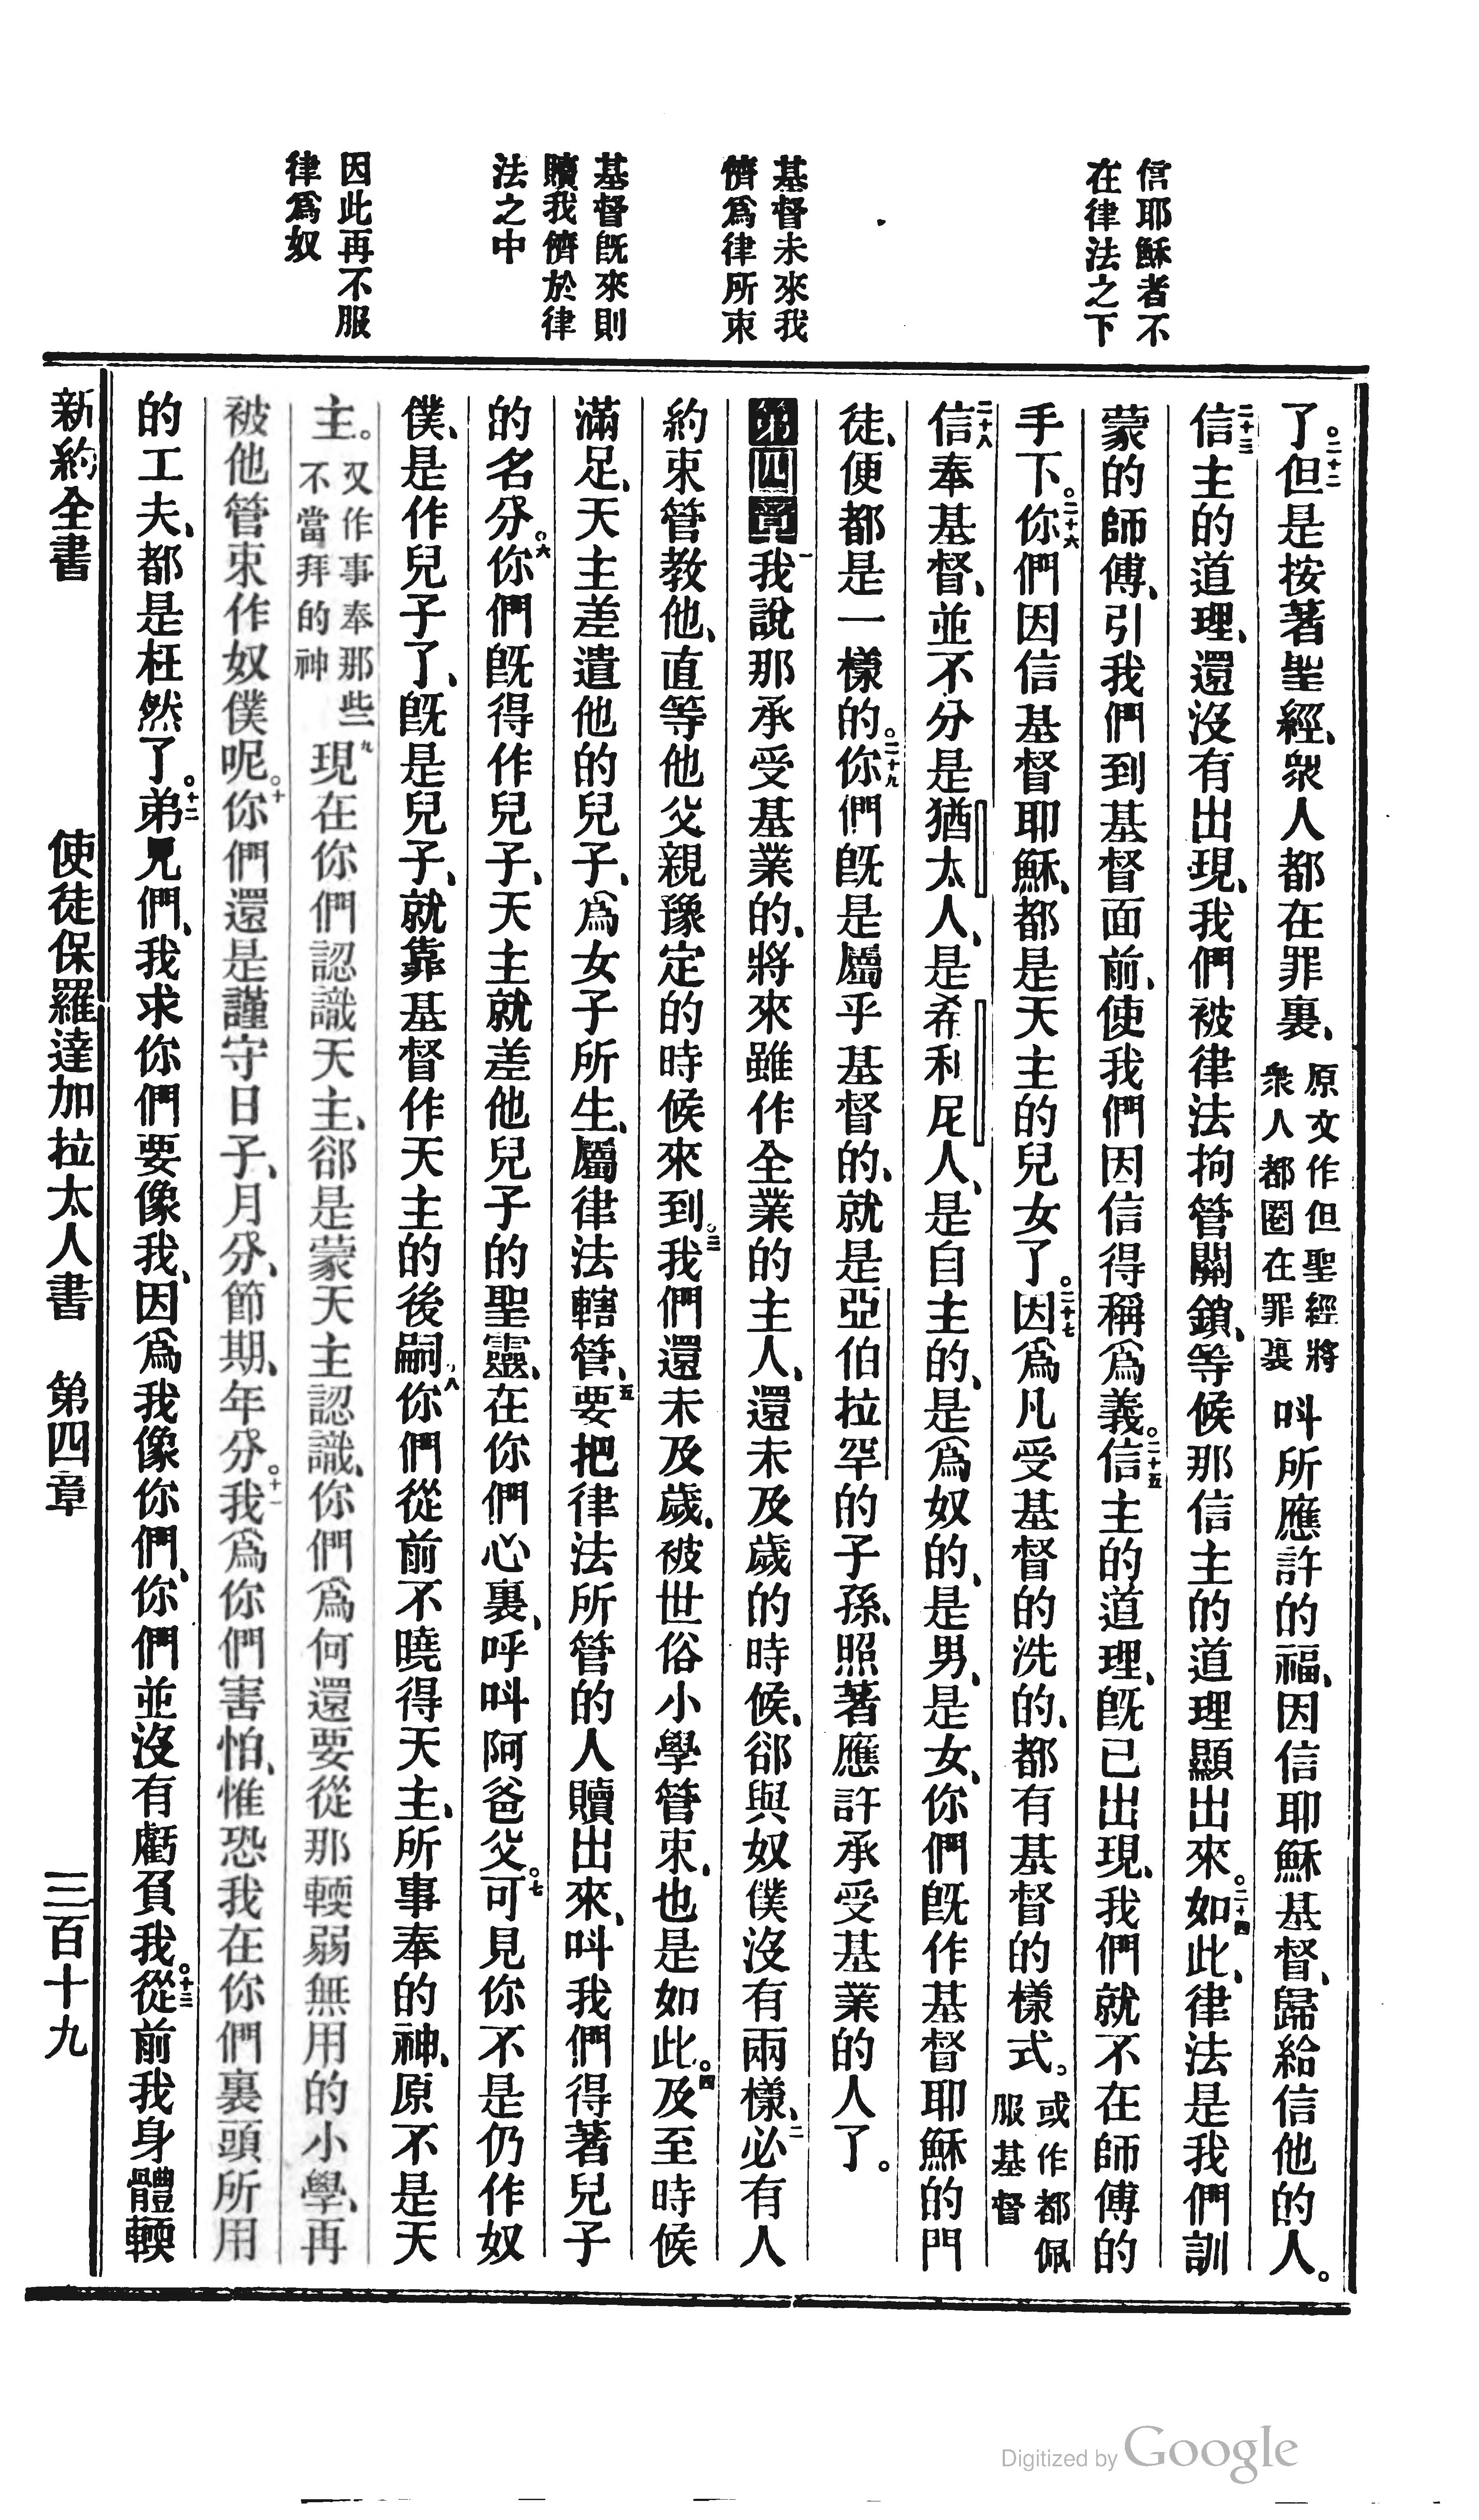 信耶穌者不
在律法之下
基督未來我
儕爲律所束
基督旣來則
贖我儕於律
法之中
因此再不服
律爲奴
了。二十二但是按著聖經、衆人都在罪裏、原文作但聖經將衆人都圈在罪裏叫所應許的福、因信耶穌基督、歸給信他的人。
二十三信主的道理、還沒有出現、我們被律法拘管關鎖、等候那信主的道理顯出來。二十四如此、律法是我們訓
蒙的師傅、引我們到基督面前、使我們因信得稱爲義。二十五信主的道理、旣已出現、我們就不在師傅的
手下。二十六你們因信基督耶穌、都是天主的兒女了。二十七因爲凡受基督的洗的、都有基督的樣式。或作都佩服基督
二十八信奉基督、並不分是猶太人、是希利尼人、是自主的、是爲奴的、是男、是女、你們旣作基督耶穌的門
徒、便都是一樣的。二十九你們旣是屬乎基督的、就是亞伯拉罕的子孫、照著應許承受基業的人了。
第四章一我說那承受基業的、將來雖作全業的主人、還未及歲的時候、卻與奴僕沒有兩樣、二必有人
約束管教他、直等他父親豫定的時候來到。三我們還未及歲、被世俗小學管束、也是如此。四及至時候
滿足、天主差遣他的兒子、爲女子所生、屬律法轄管、五要把律法所管的人贖出來、叫我們得著兒子
的名分。六你們旣得作兒子、天主就差他兒子的聖靈、在你們心裏、呼叫阿爸父。七可見你不是仍作奴
僕、是作兒子了、旣是兒子、就靠基督作天主的後嗣、八你們從前不曉得天主、所事奉的神、原不是天
主。又作事奉那些不當拜的神九現在你們認識天主、卻是蒙天主認識、你們爲何還要從那輭弱無用的小學、再
被他管束作奴僕呢。十你們還是謹守日子、月分、節期、年分。十一我爲你們害怕、惟恐我在你們裏頭所用
的工夫、都是枉然了。十二弟兄們、我求你們要像我、因爲我像你們、你們並沒有虧負我。十三從前我身體輭
新約全書　使徒保羅達加拉太人書　第四章　三百十九
Digitized by Google